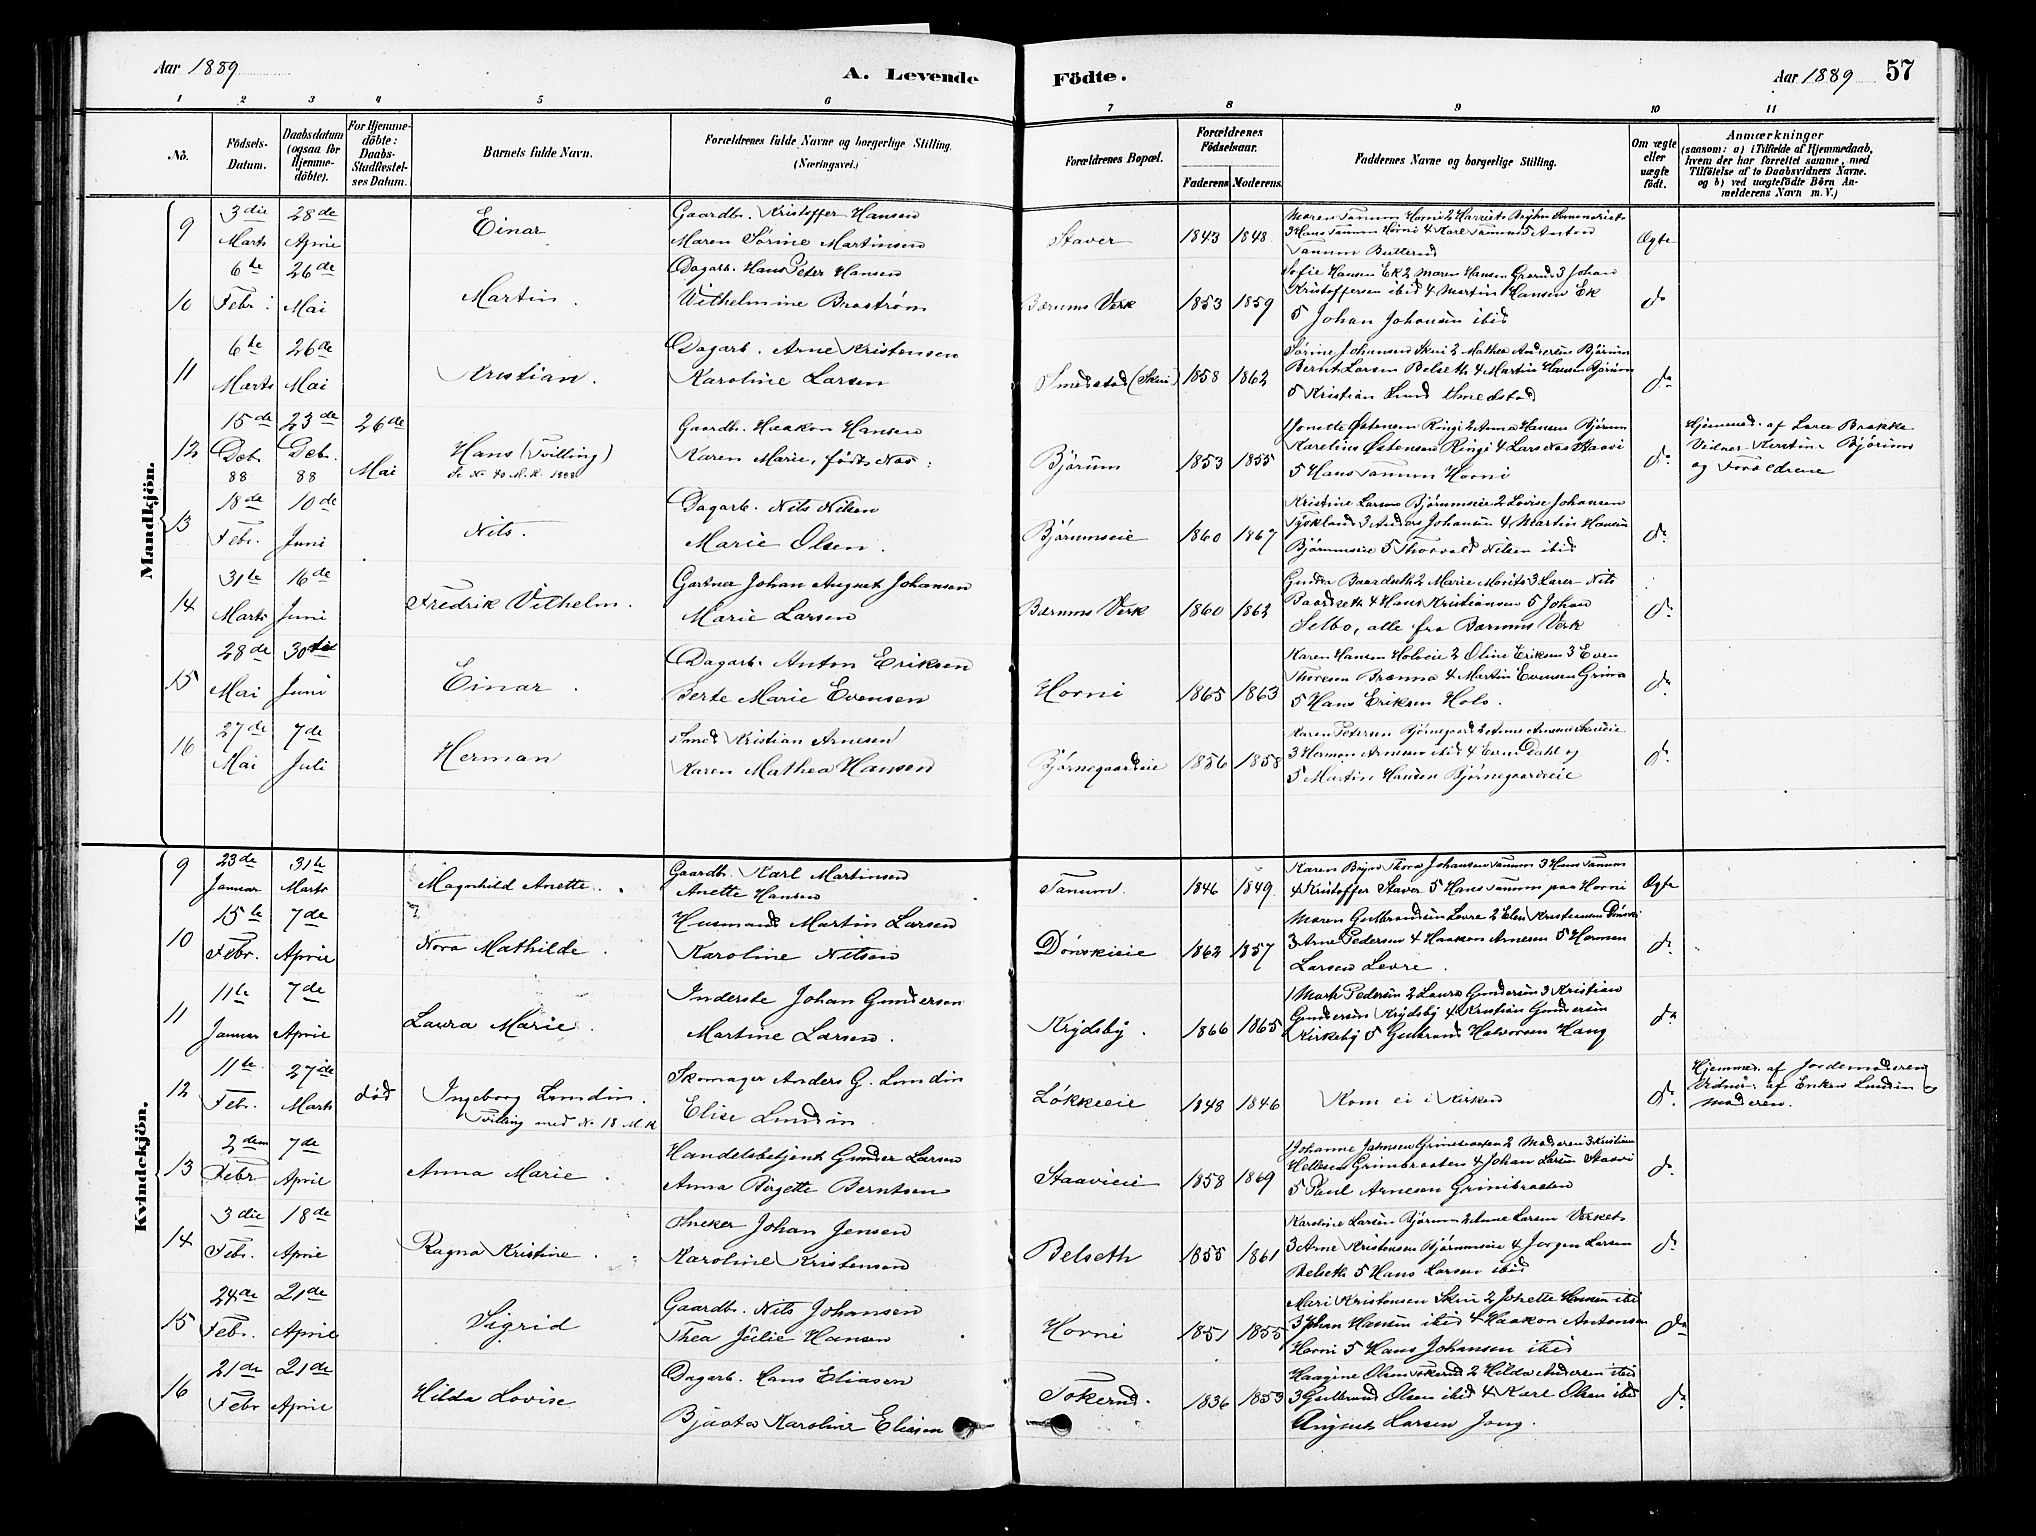 Aar 1889
A. Levende
Födte.
Aar 1889
57
1 2 3 4 5 6 7 8 9 10 11
No.
Födsels-Datum.
Daabsdatum (ogsaa for Hjemme-döbte).
For Hjemme-döbte: Daabs-Stadfæstel-ses Datum.
Barnets fulde Navn.
Forældrenes fulde Navne og borgerlige Stilling. (Næringsvei.)
Forældrenes Bopæl.
Forældrenes Födselsaar.
Faderens
Moderens
Faddernes Navne og borgerlige Stilling.
Om ægte eller uægte födt.
Anmærkninger
(saasom: a) i Tilfælde af Hjemmedaab, hvem der har forrettet samme, med Tilföielse af to Daabsvidners Navne. og b) ved uægtefödte Börn An-melderens Navn m. V.)
Mandkjön.
9 3die Marts 28de April Einar Gaardbr. Kristoffer Hansen
Maren Sørine Martinsen Staver 1843 1848
Maren Tanum Horni 2 Harriet Bryhn
3 Hans Tanum Horni 4 Karl Tanum 5 Anton
Tanum Butterud Ægte
10 6te Febr: 26de Mai Martin. Dagarb. Hans Peter Hansen
Vilhelmine Brostrøm Bærums Verk 1853 1859
Sofie Hansen Ek 2 Maren Hansen 3 Johan
Kristoffersen ibid 4 Martin Hansen Ek
5 Johan Johansen ibid do
11 6te Marts 26de Mai Kristian. Dagarb. Arne Kristensen
Karoline Larsen Smedstad (Skui) 1858 1862
Sørine Johansen Skui 2 Mathea Andersen Bjørum
Bernt Larsen Belseth 4 Martin Hansen Bjørum
5 Kristian Lund Smedstad do
12 15de Dcb. 88 23de Dcb. 88 26de Mai Hans (Tvilling)
Se No 40 M.K. 1888
Gaardbr. Haakon Hansen
Karen Marie, født Næs: Bjørum 1853 1855
1 Jonette Østensen Ringi 2 Anna Hansen Bjørum
Karelius Østensen Ringi 4 Lars Næs Staavi
5 Hans Tanum Horni do
Hjemmed. af Lærer Brekke
Vidner Kirstine Bjørum
og Forældrene
13 18de Febr. 10de Juni Nils. Dagarb. Nils Nilsen
Marie Olsen. Bjørumseie 1860 1867
Kristine Larsen Bjørumseie 2 Lovise Johansen
Tyskland 3 Anders Johansen 4 Martin Hansen
Bjørumseie 5 Thorvald Nilsen ibid do
14 31te Marts 16de Juni Fredrik Vilhelm. Gartner Johan August Johansen
Marie Larsen Bærums Verk 1860 1862
Gunda Baardseth 2 Marie Morits 3 Lærer Nils
Baardseth 4 Hans Kristiansen 5 Johan
Selbo, alle fra Bærums Verk do
15 28de Mai 30te Juni Einar. Dagarb. Anton Eriksen
Berte Marie Evensen Horni 1865 1863
Karen Hansen Holseie 2 Oline Eriksen 3 Even
Thoresen Brænna 4 Martin Evensen Grina
5 Hans Eriksen Hols. do
16 27de Mai 7de Juli Herman Smed Kristian Arnesen
Karen Mathea Hansen Bjørnegaardseie 1856 1858
Karen Petersen Bjørnegaard 2 Anne Arnesen
3 Herman Arnesen ibid 4 Even Dahl og
5 Martin Hansen Bjørnegaardseie do
Kvindekjön.
9 23de Januar 31te Marts Magnhild Anette. Gaardbr. Karl Martinsen
Anette Hansen Tanum. 1846 1849
Karen Bryn Thora Johansen Tanum 3 Hans Tanum
4 Kristoffer Staver 5 Hans Tanum paa Horni Ægte
10 15te Febr. 7de April Nora Mathilde. Husmand Martin Larsen
Karoline Nilsen Dønskieie 1862 1857
Maren Gulbrandsen Levre 2 Elen Kristiansen Dønski
3 Arne Pedersen 4 Haakon Arnesen 5 Herman
Larsen Levre. do
11 11te Januar 7de April Laura Marie. Inderste Johan Gundersen
Martine Larsen. Krydsby. 1866 1865
1 Mark Pedersen 2 Laura Gundersen 3 Kristian
Gundersen Krydsby 4 Kristian Gundersen
Kirkeby 5 Gulbrand Halvorsen Haug do
12 11te Febr. 27de Marts død Ingeborg Lundin.
Tvilling med No 18 M.K
Skomager Anders G. Lundin
Elise Lundin. Løkkeeie 1848 1846
Kom ei i Kirken do.
Hjemmed. af Jordemoderen
Vidner: af Enken Lundin og
Moderen.
13 2den Febr 7de April Anna Marie. Handelsbetjent Gunder Larsen
Anna Birgette Berntsen Staavieie 1858 1869
1 Johanne Jahnsen Grinibraaten 2 Moderen 3 Kristian
Hellesen Grinibraaten 4 Johan Larsen Staavi
5 Paul Arnesen Grinibraaten do
14 3die Febr. 18de April Ragna Kristine. Sneker Johan Jensen
Karoline Kristensen Belseth 1855 1861
Karoline Larsen Bjørum 2 Anne Larsen Verket
3 Arne Kristensen Bjørumseie 4 Jørgen Larsen
Belseth 5 Hans Larsen ibid do
15 24de Febr. 21de April Sigrid Gaardbr. Nils Johansen
Thea Julie Hansen Horni 1851 1855
Mari Kristensen Skui 2 Jonette Hansen ibid
3 Johan Hansen ibid 4 Haakon Antonsen
Horni 5 Hans Johansen ibid do
16 21de Febr 21de April Hilda Lovise Dagarb. Hans Eliasen
Bjaata Karoline Eliasen Tokerud. 1836 1853
Haagine Olsen Tokerud 2 Hilda Andersen ibid
3 Gulbrand Olsen ibid 4 Karl Olsen ibid
August Larsen Jong. do